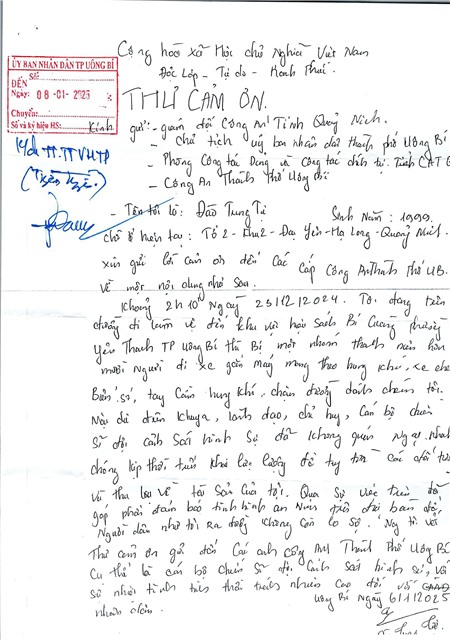 Cộng hoà xã Hội chủ Nghĩa Việt Nam
Độc Lập - Tự do - Hạnh Phúc.
ỦY BAN NHÂN DÂN TP UÔNG BÍ
Số:
ĐẾN
Ngày: 08 -01- 2025
Chuyển:
Số và ký hiệu HS:
THƯ CẢM ƠN.
Kính gửi: - giám đốc Công An Tỉnh Quảng Ninh.
- Chủ tịch uỷ ban nhân dân thành phố Uông Bí
- Phòng Công tác Đảng và công tác chính trị. Tỉnh
- Công An Thành Phố Uông Bí
TT.TTVHTP
- Tên tôi là: Đào Trung Tự Sinh Năm: 1999.
chỗ ở hiện tay: Tổ 2 - Khu 2 - Đại Yên - Hạ Long - Quảng Ninh.
xin gửi lời cảm ơn đến Các Cấp Công An Thành Phố UB.
về một nội dung như sau.
Khoảng 2h10' Ngày 23/12/2024. Tôi đang trên
đường đi làm về đến khu vực
Yên Thanh TP Uông Bí Thì Bị một nhóm thanh niên hơn
mười Người đi xe gắn máy mang theo hung khí, xe che
Biển số, tay Cầm hung khí, chặn đường đánh chém tôi.
Mặc dù đêm khuya, lãnh đạo, chỉ huy, Cán bộ chiến
Sĩ đội Cảnh Sát hình Sự đã không quản
chóng kịp thời triển khai lực lượng để truy tìm các đối
và thu lại về tài Sản Của tôi. Qua sự việc trên đã
góp phần đảm bảo tình hình an Ninh trên địa bàn
Người dân như tôi ra đường không còn lo sợ.
Thư cảm ơn gửi đến Các anh Công An Thành Phố Uông Bí
Cụ thể là cán bộ chiến sĩ đội Cảnh Sát hình sự, với
sự nhiệt tình tinh thần trách nhiệm cao đối với
nhân dân. Uông Bí Ngày 6/1/2025